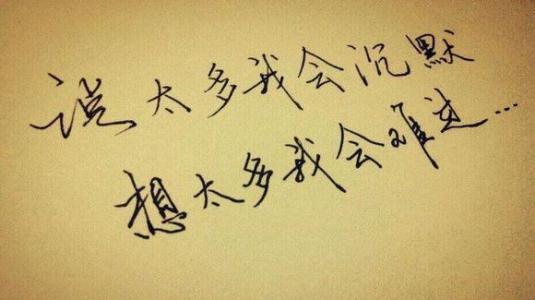 说太多我会沉默
想太多我会难过...